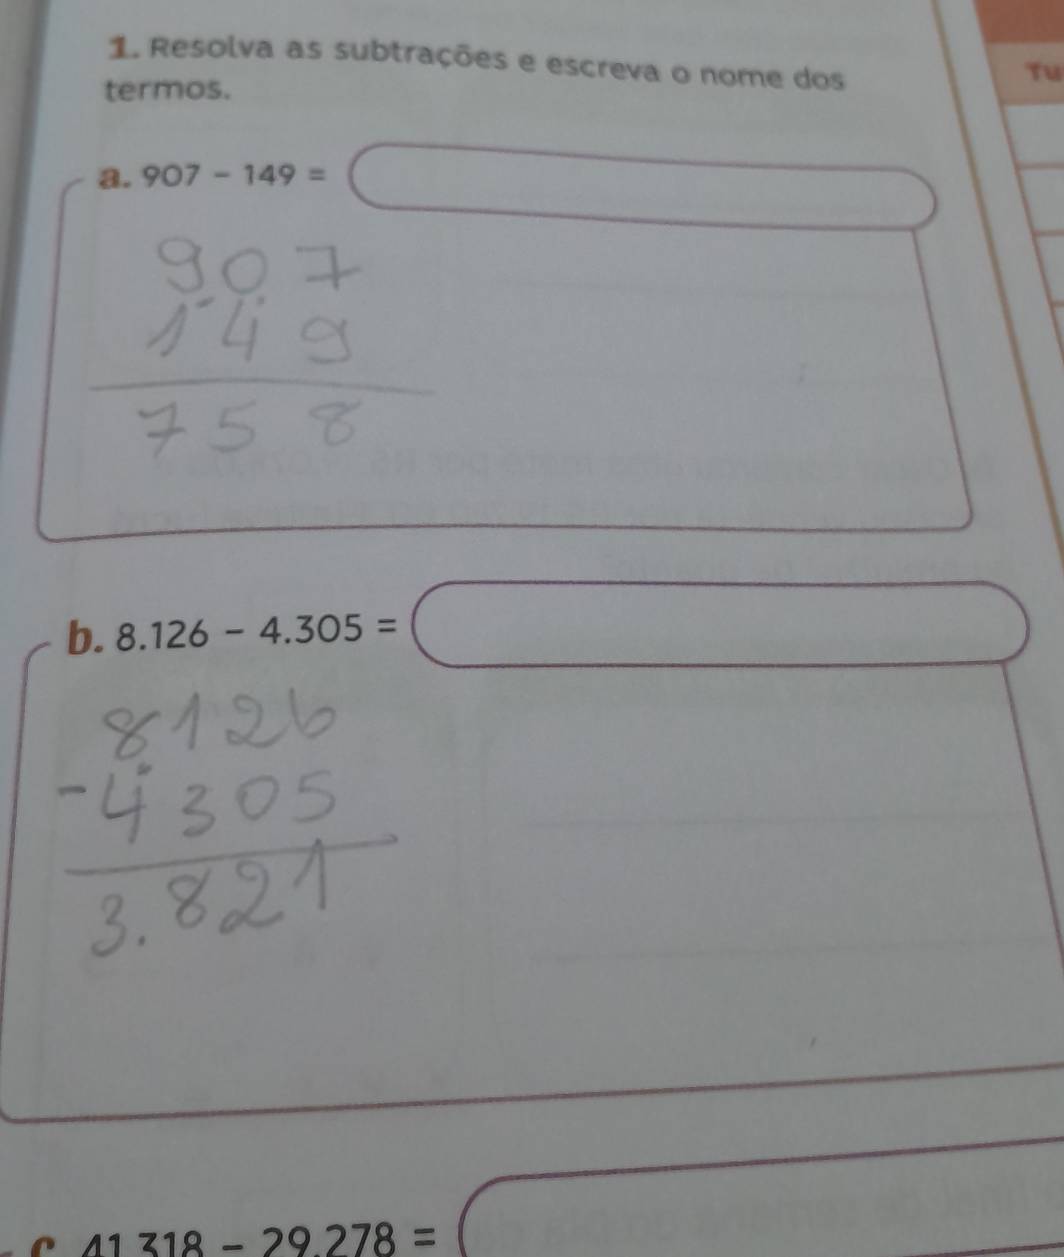 1. Resolva as subtrações e escreva o nome dos
termos.
TU
a. 907 - 149 =
907
- 149
758
b. 8.126 - 4.305 =
8126
- 4305
3.821
c 41 318 - 29.278 =